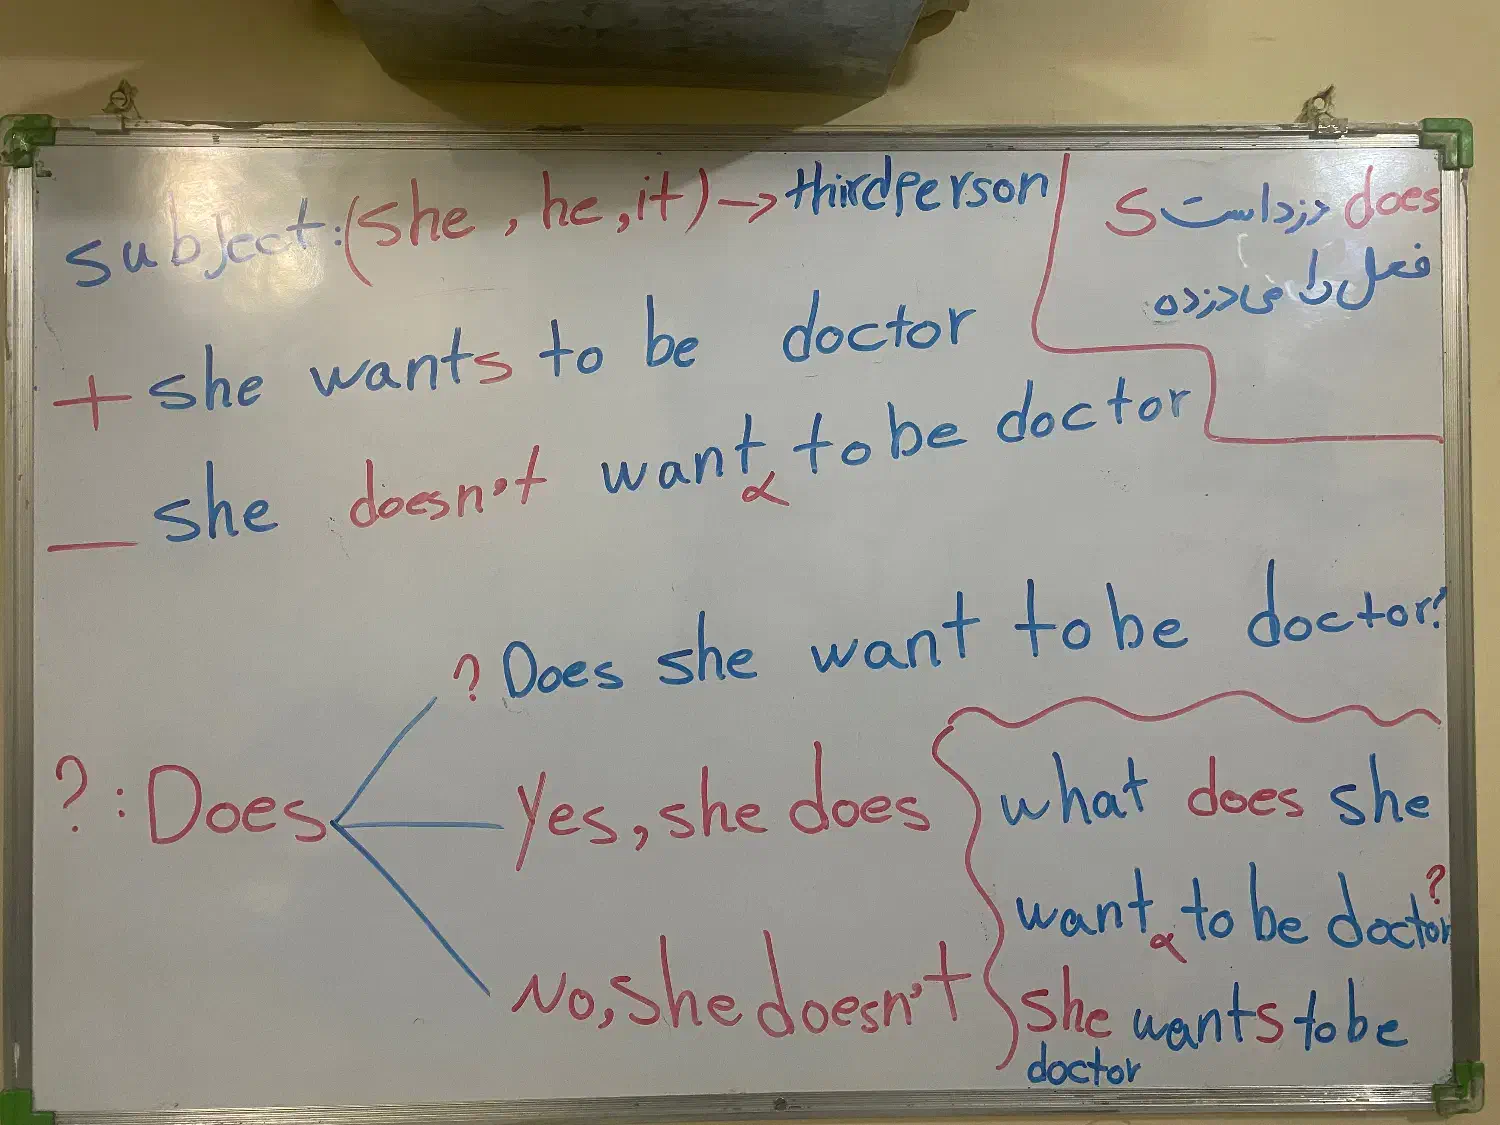 subject: (she, he, it) → third person
does دزد است s
فعل را می‌دزده
+ she wants to be doctor
— she doesn't want to be doctor
? Does she want to be doctor?
? : Does
Yes, she does
No, she doesn't
what does she
want to be doctor?
she wants to be
doctor